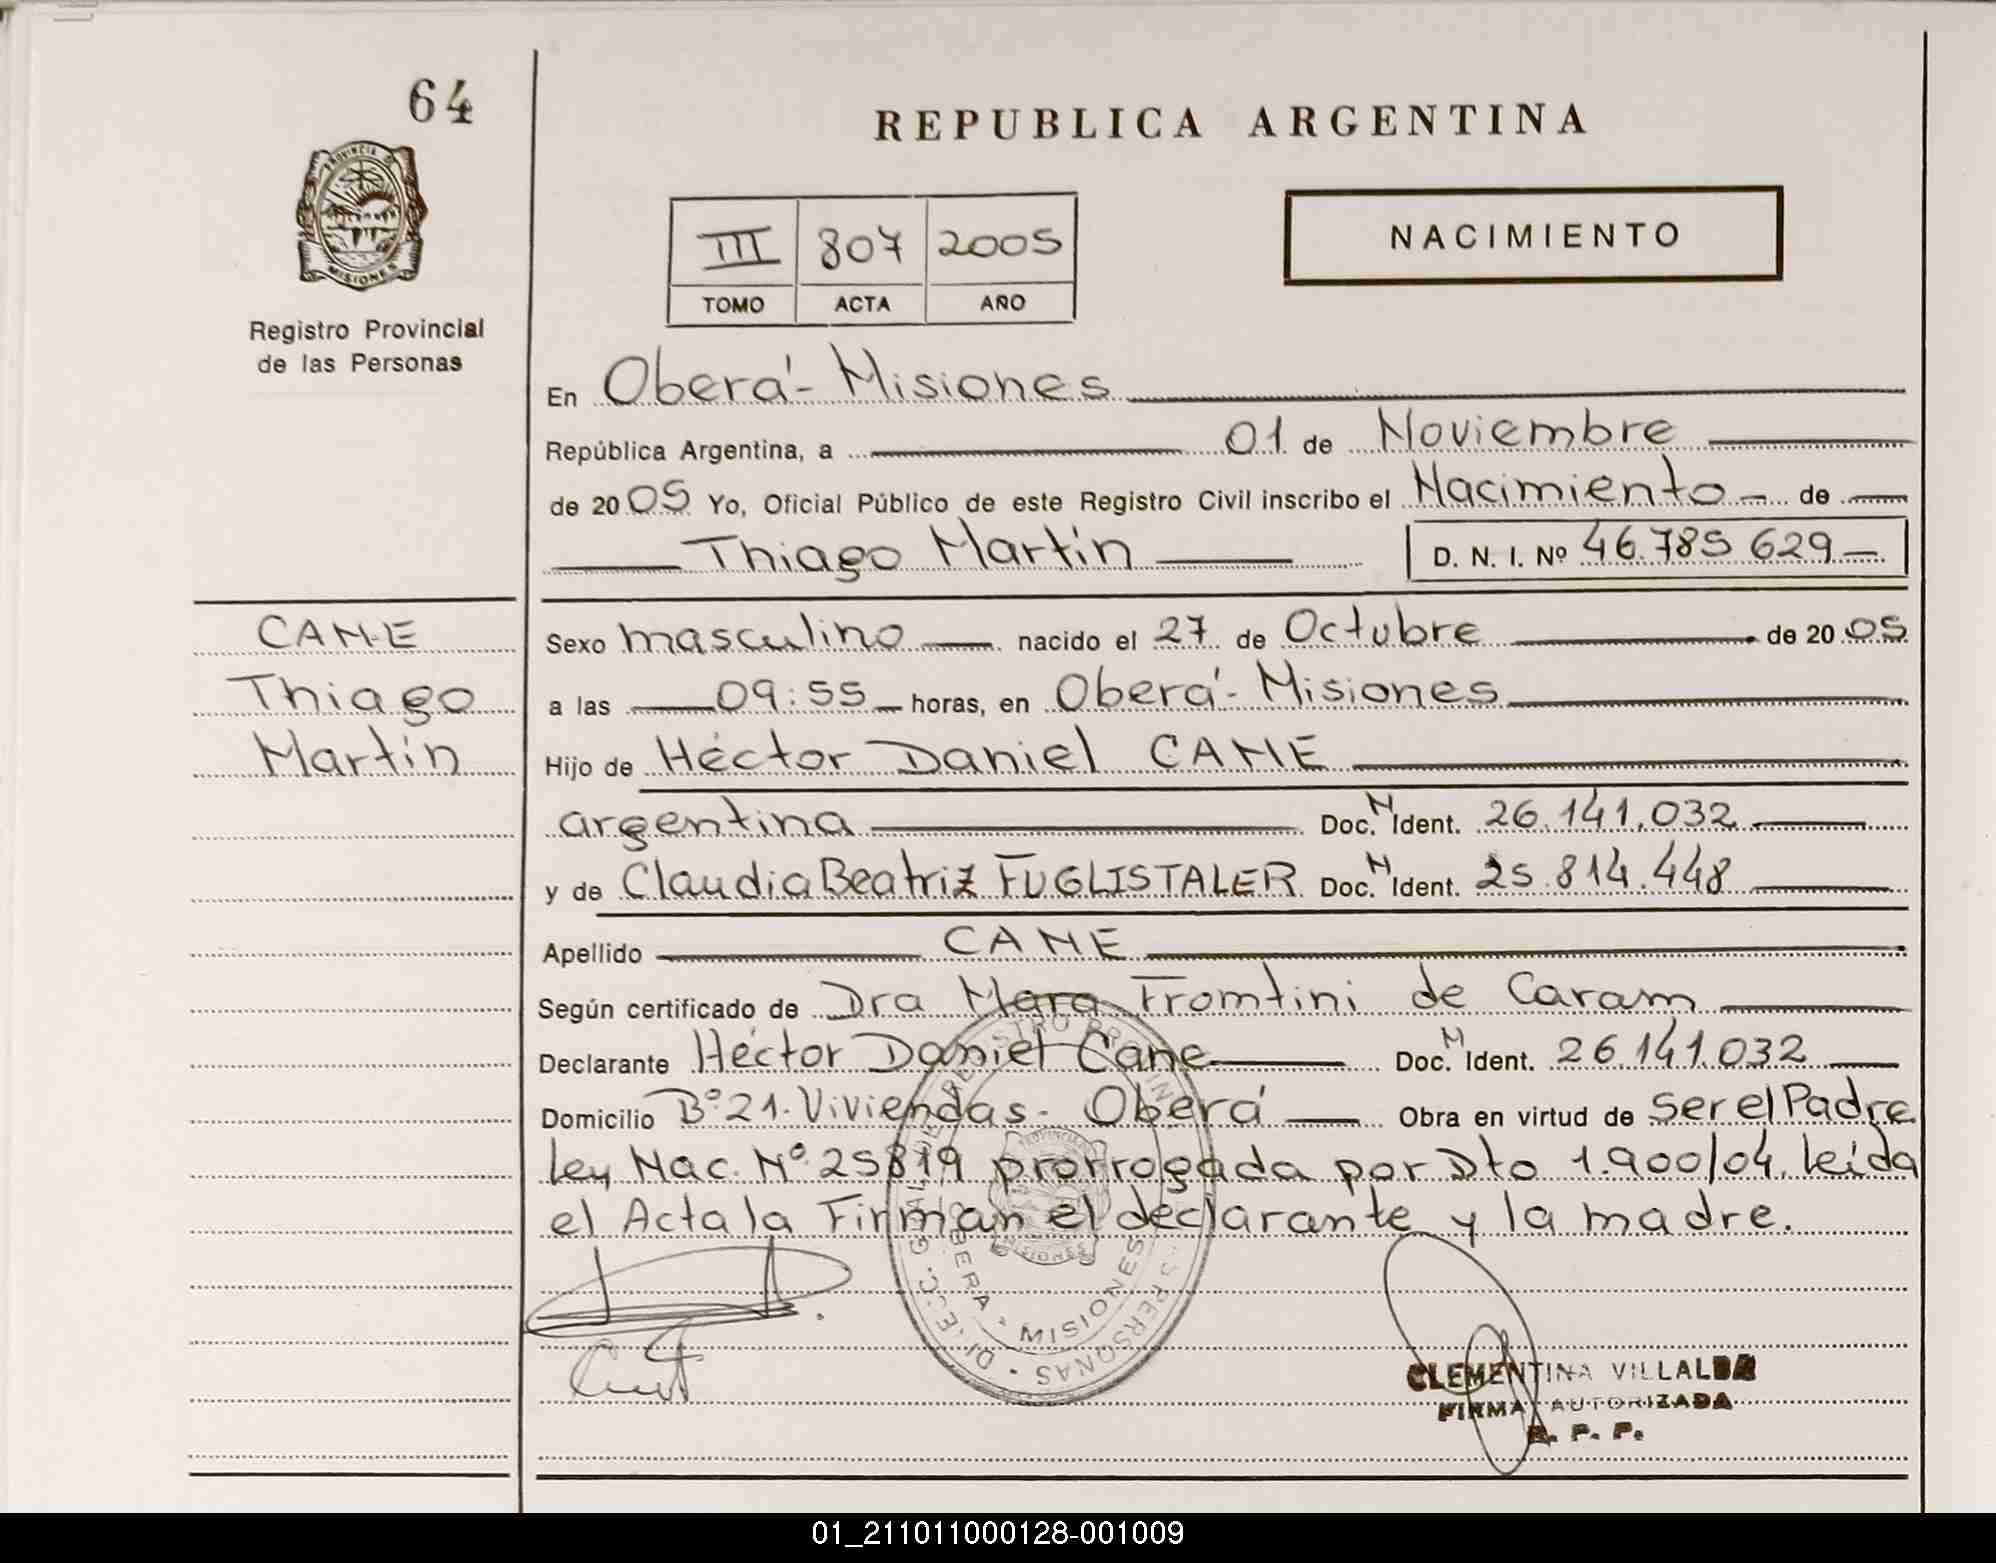 64
REPUBLICA ARGENTINA
PROVINCIA DE
MISIONES
Registro Provincial
de las Personas
III 807 2005
TOMO ACTA AÑO
NACIMIENTO
En Oberá - Misiones
República Argentina, a 01 de Noviembre
de 2005 Yo, Oficial Público de este Registro Civil inscribo el Nacimiento - de
Thiago Martín D. N. I. Nº 46.785 629
CANE
Thiago
Martín
Sexo masculino nacido el 27 de Octubre de 2005
a las 09:55 horas, en Oberá - Misiones
Hijo de Héctor Daniel CANE
argentina Doc. N Ident. 26.141.032
y de Claudia Beatriz FUGLISTALER Doc. N Ident. 25.814.448
Apellido CANE
Según certificado de Dra Mara Fromtini de Caram
Declarante Héctor Daniel Cane Doc. N Ident. 26.141.032
Domicilio Bº 21. Viviendas - Oberá Obra en virtud de ser el Padre
Ley Nac. Nº 25819 prorrogada por Dto 1.900/04. leída
el Acta la Firman el declarante y la madre.
OBERA - MISIONES
CLEMENTINA VILLALBA
FIRMA AUTORIZADA
R. P. P.
01_211011000128-001009